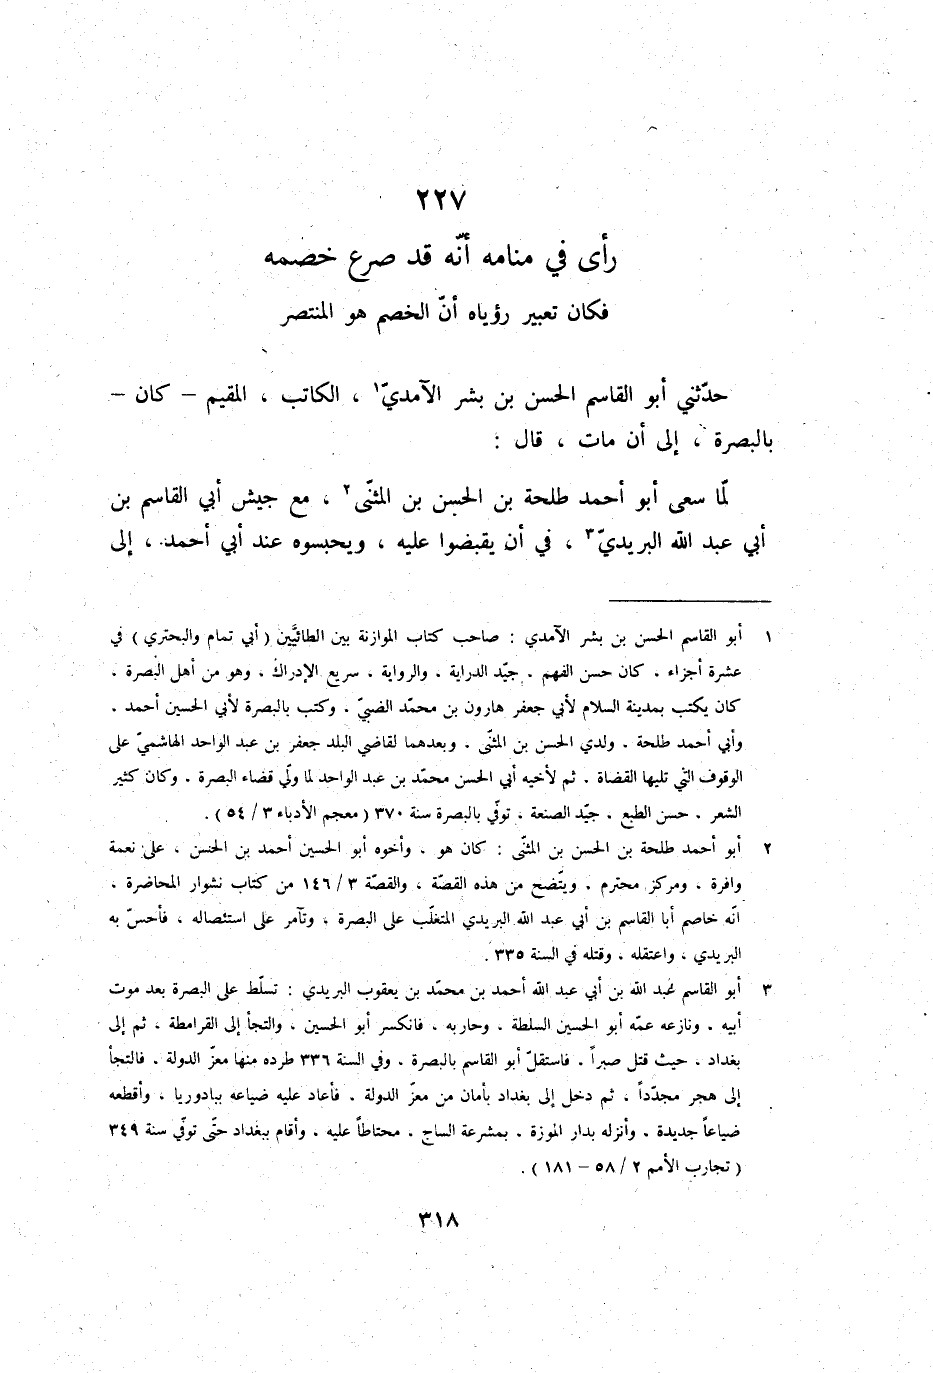 ٢٢٧
رأى في منامه أنّه قد صرع خصمه
فكان تعبير رؤياه أنّ الخصم هو المنتصر
حدّثني أبو القاسم الحسن بن بشر الآمديّ١ ، الكاتب ، المقيم – كان –
بالبصرة ، إلى أن مات ، قال :
لمّا سعى أبو أحمد طلحة بن الحسن بن المثنّى٢ ، مع جيش أبي القاسم بن
أبي عبد الله البريديّ٣ ، في أن يقبضوا عليه ، ويحبسوه عند أبي أحمد ، إلى
١ أبو القاسم الحسن بن بشر الآمدي : صاحب كتاب الموازنة بين الطائيَّين ( أبي تمام والبحتري ) في
عشرة أجزاء ، كان حسن الفهم ، جيّد الدراية ، والرواية ، سريع الإدراك ، وهو من أهل البصرة ،
كان يكتب بمدينة السلام لأبي جعفر هارون بن محمّد الضبيّ ، وكتب بالبصرة لأبي الحسين أحمد ،
وأبي أحمد طلحة ، ولدي الحسن بن المثنّى ، وبعدهما لقاضي البلد جعفر بن عبد الواحد الهاشميّ على
الوقوف التي تليها القضاة ، ثم لأخيه أبي الحسن محمّد بن عبد الواحد لما ولّي قضاء البصرة ، وكان كثير
الشعر ، حسن الطبع ، جيّد الصنعة ، توفّي بالبصرة سنة ٣٧٠ ( معجم الأدباء ٣ / ٥٤ ) .
٢ أبو أحمد طلحة بن الحسن بن المثنّى : كان هو ، وأخوه أبو الحسين أحمد بن الحسن ، على نعمة
وافرة ، ومركز محترم ، ويتّضح من هذه القصّة ، والقصّة ٣ / ١٤٦ من كتاب نشوار المحاضرة ،
انّه خاصم أبا القاسم بن أبي عبد الله البريدي المتغلّب على البصرة ، وتآمر على استئصاله ، فأحسّ به
البريدي ، واعتقله ، وقتله في السنة ٣٣٥ .
٣ أبو القاسم عُبد الله بن أبي عبد الله أحمد بن محمّد بن يعقوب البريدي : تسلّط على البصرة بعد موت
أبيه ، ونازعه عمّه أبو الحسين السلطة ، وحاربه ، فانكسر أبو الحسين ، والتجأ إلى القرامطة ، ثم إلى
بغداد ، حيث قتل صبراً ، فاستقلّ أبو القاسم بالبصرة ، وفي السنة ٣٣٦ طرده منها معزّ الدولة ، فالتجأ
إلى هجر مجدّداً ، ثم دخل إلى بغداد بأمان من معزّ الدولة ، فأعاد عليه ضياعه ببادوريا ، وأقطعه
ضياعاً جديدة ، وأنزله بدار الموزة ، بمشرعة الساج ، محتاطاً عليه ، وأقام ببغداد حتّى توفّي سنة ٣٤٩
( تجارب الأمم ٢ / ٥٨ – ١٨١ ) .
٣١٨